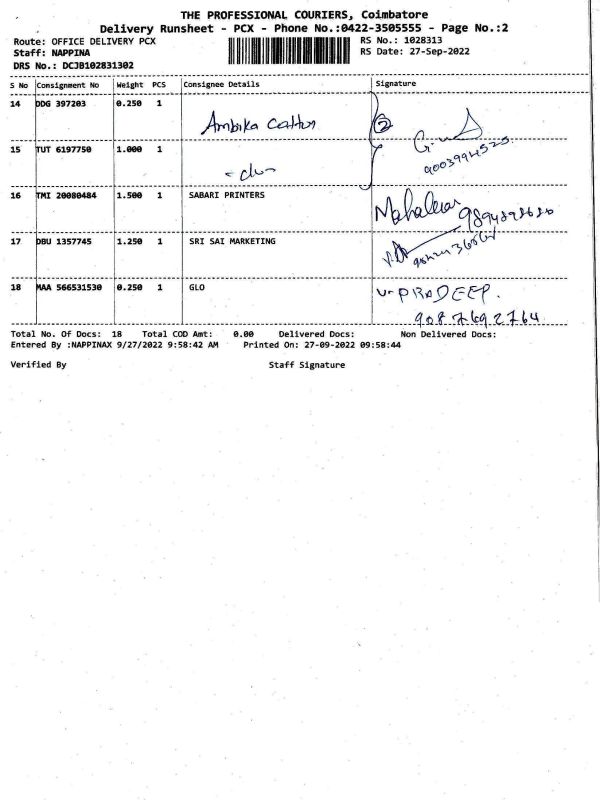 THE PROFESSIONAL COURIERS, Coimbatore
Delivery Runsheet - PCX - Phone No.:0422-3505555 - Page No.:2
Route: OFFICE DELIVERY PCX
RS No.: 1028313
Staff: NAPPINA
RS Date: 27-Sep-2022
DRS No.: DCJB102831302
S No Consignment No Weight PCS Consignee Details Signature
14 DDG 397203 0.250 1
Ambika Cotton
2
15 TUT 6197750 1.000 1
9003994525
16 TMI 20080484 1.500 1 SABARI PRINTERS
17 DBU 1357745 1.250 1 SRI SAI MARKETING
18 MAA 566531530 0.250 1 GLO
V-PRADEEP.
9087692764
Total No. Of Docs: 18 Total COD Amt: 0.00 Delivered Docs: Non Delivered Docs:
Entered By :NAPPINAX 9/27/2022 9:58:42 AM Printed On: 27-09-2022 09:58:44
Verified By Staff Signature